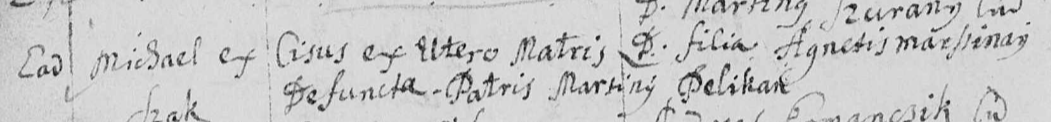 D. Martiny Kurany
Ead Michael ex Cisus ex Utero Matris D. filia Agnetis marsinaÿ
Defuncta - Patris Martinÿ Pelikan
czak